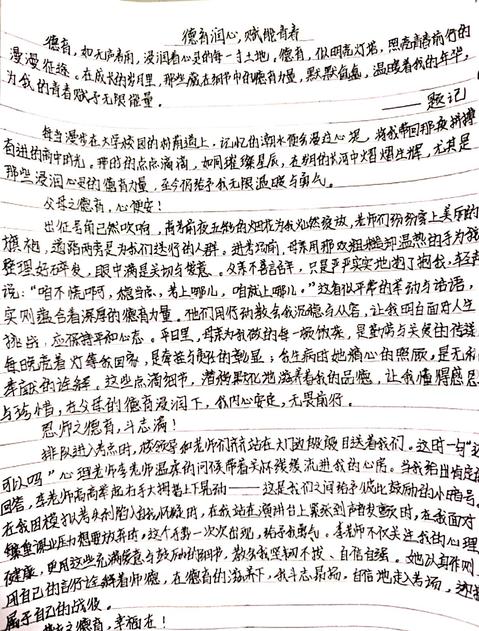 德育润心,赋能青春
德育,如无声春雨,浸润着心灵的每一寸土地。德育,似明亮灯塔,照亮青春前行的
漫漫征途。在成长的岁月里,那些藏在细节中的德育力量,默默负载,温暖着我的年华,
为我的青春赋予无限能量。
——题记
每当漫步在大学校园的林荫道上,记忆的潮水便会漫过心堤,将我带回那段拼搏
奋进的高中时光。那时的点点滴滴,如同璀璨星辰,在时的长河中熠熠生辉,尤其是
那些浸润心灵的德育力量,至今仍给予我无限温暖与勇气。
父母之德育,心便安!
出征号角已然吹响,高考前夜五彩的烟花为我灿然绽放,老师们纷纷穿上美丽的
旗袍,道路两旁是为我们送行的人群。进考场前,母亲用那双粗糙却温热的手为我
整理好碎发,眼中满是关切与慈爱。父亲不善言辞,只是严严实实地抱了抱我,轻声
说:“咱不慌啊,稳当点,考上哪儿,咱就上哪儿。”这看似平常的举动与话语,
实则蕴含着深厚的德育力量。他们用行动教会我沉稳与从容,让我明白面对人生
挑战,应保持平和心态。平日里,母亲为我做的每一顿饭菜,是勤劳与关爱的传递
每晚亮着灯等我回家,是牵挂与陪伴的彰显;我生病时她精心的照顾,是无私
奉献的诠释。这些点滴细节,潜移默化地滋养着我的品德,让我懂得感恩
与珍惜,在父母的德育浸润下,我内心安定,无畏前行。
恩师之德育,斗志满!
排队进入考点时,校领导和老师们都站在大门边般般目送着我们。这时一句“还
可以吗”心理老师李老师温柔的问候带着关怀缓缓流进我的心房。当我给出肯定的
回答,李老师高高举起右手大拇指上下晃动——这是我们之间给予彼此鼓励的小暗号。
在我因模拟考失利陷入自我怀疑时,在我站在演讲台上紧张到声音发颤时,在我面对
繁重课业压力想要放弃时,这个手势一次次出现,给予我勇气。李老师不仅关注我的心理
健康,更用这些充满爱意与鼓励的细节,教会我坚韧不拔、自信自强。她认真作则
用自己的言行诠释着师德,在德育的滋养下,我斗志昂扬,自信地走入考场,迎接
属于自己的战役。
之德育,幸福在!